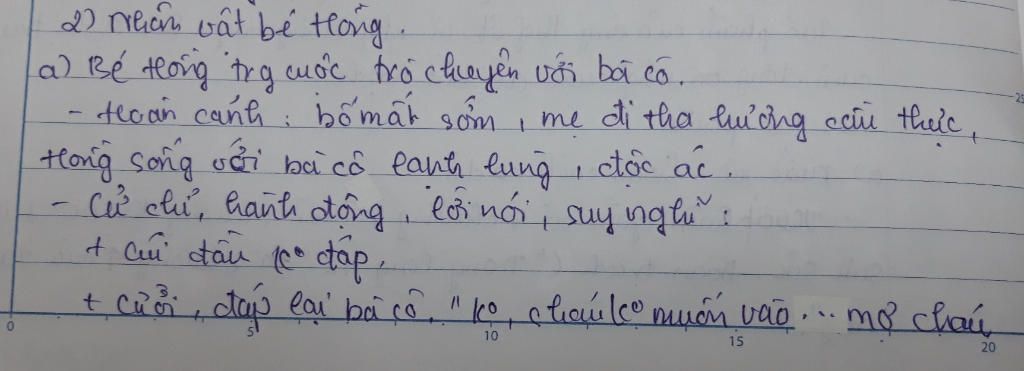 2) Nhân vật bé Hồng.
a) Bé Hồng trg cuộc trò chuyện với bà cô.
- Hoàn cảnh: bố mất sớm, mẹ đi tha hương cầu thực,
Hồng sống với bà cô lạnh lùng, độc ác.
- Cử chỉ, hành động, lời nói, suy nghĩ:
+ Cúi đầu ko đáp,
+ Cười, đáp lại bà cô, "ko, cháu ko muốn vào ... mợ cháu
0 5 10 15 20
25